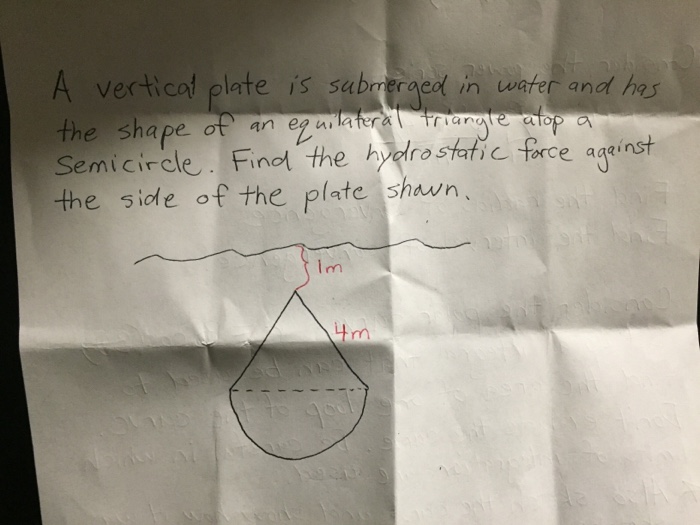 A vertical plate is submerged in water and has
the shape of an equilateral triangle atop a
Semicircle. Find the hydrostatic force against
the side of the plate shown.
1m
4m